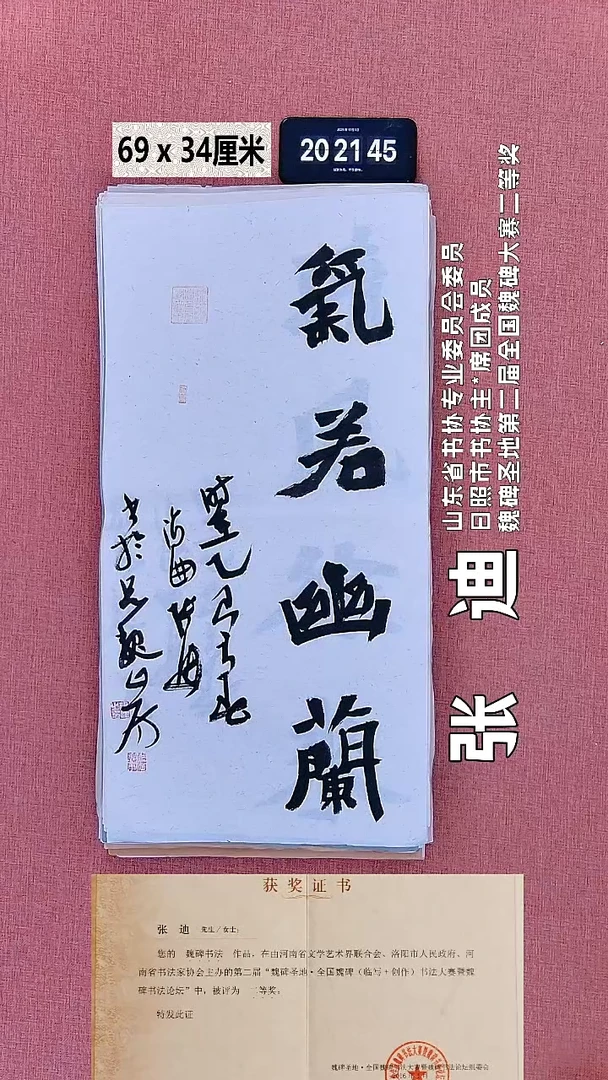 69 x 34厘米
20 21 45
氣若幽蘭
时至乙巳之春
海曲張迪
书於尺魏山房
山东省书协专业委员会委员
日照市书协主*席团成员
魏碑圣地第二届全国魏碑大赛二等奖
张 迪
获奖证书
张 迪 先生/女士：
您的 魏碑书法 作品，在由河南省文学艺术界联合会、洛阳市人民政府、河
南省书法家协会主办的第二届“魏碑圣地·全国魏碑（临写+创作）书法大赛暨魏
碑书法论坛”中，被评为 二等奖；
特发此证
魏碑圣地·全国魏碑书法大赛暨魏碑书法论坛组委会